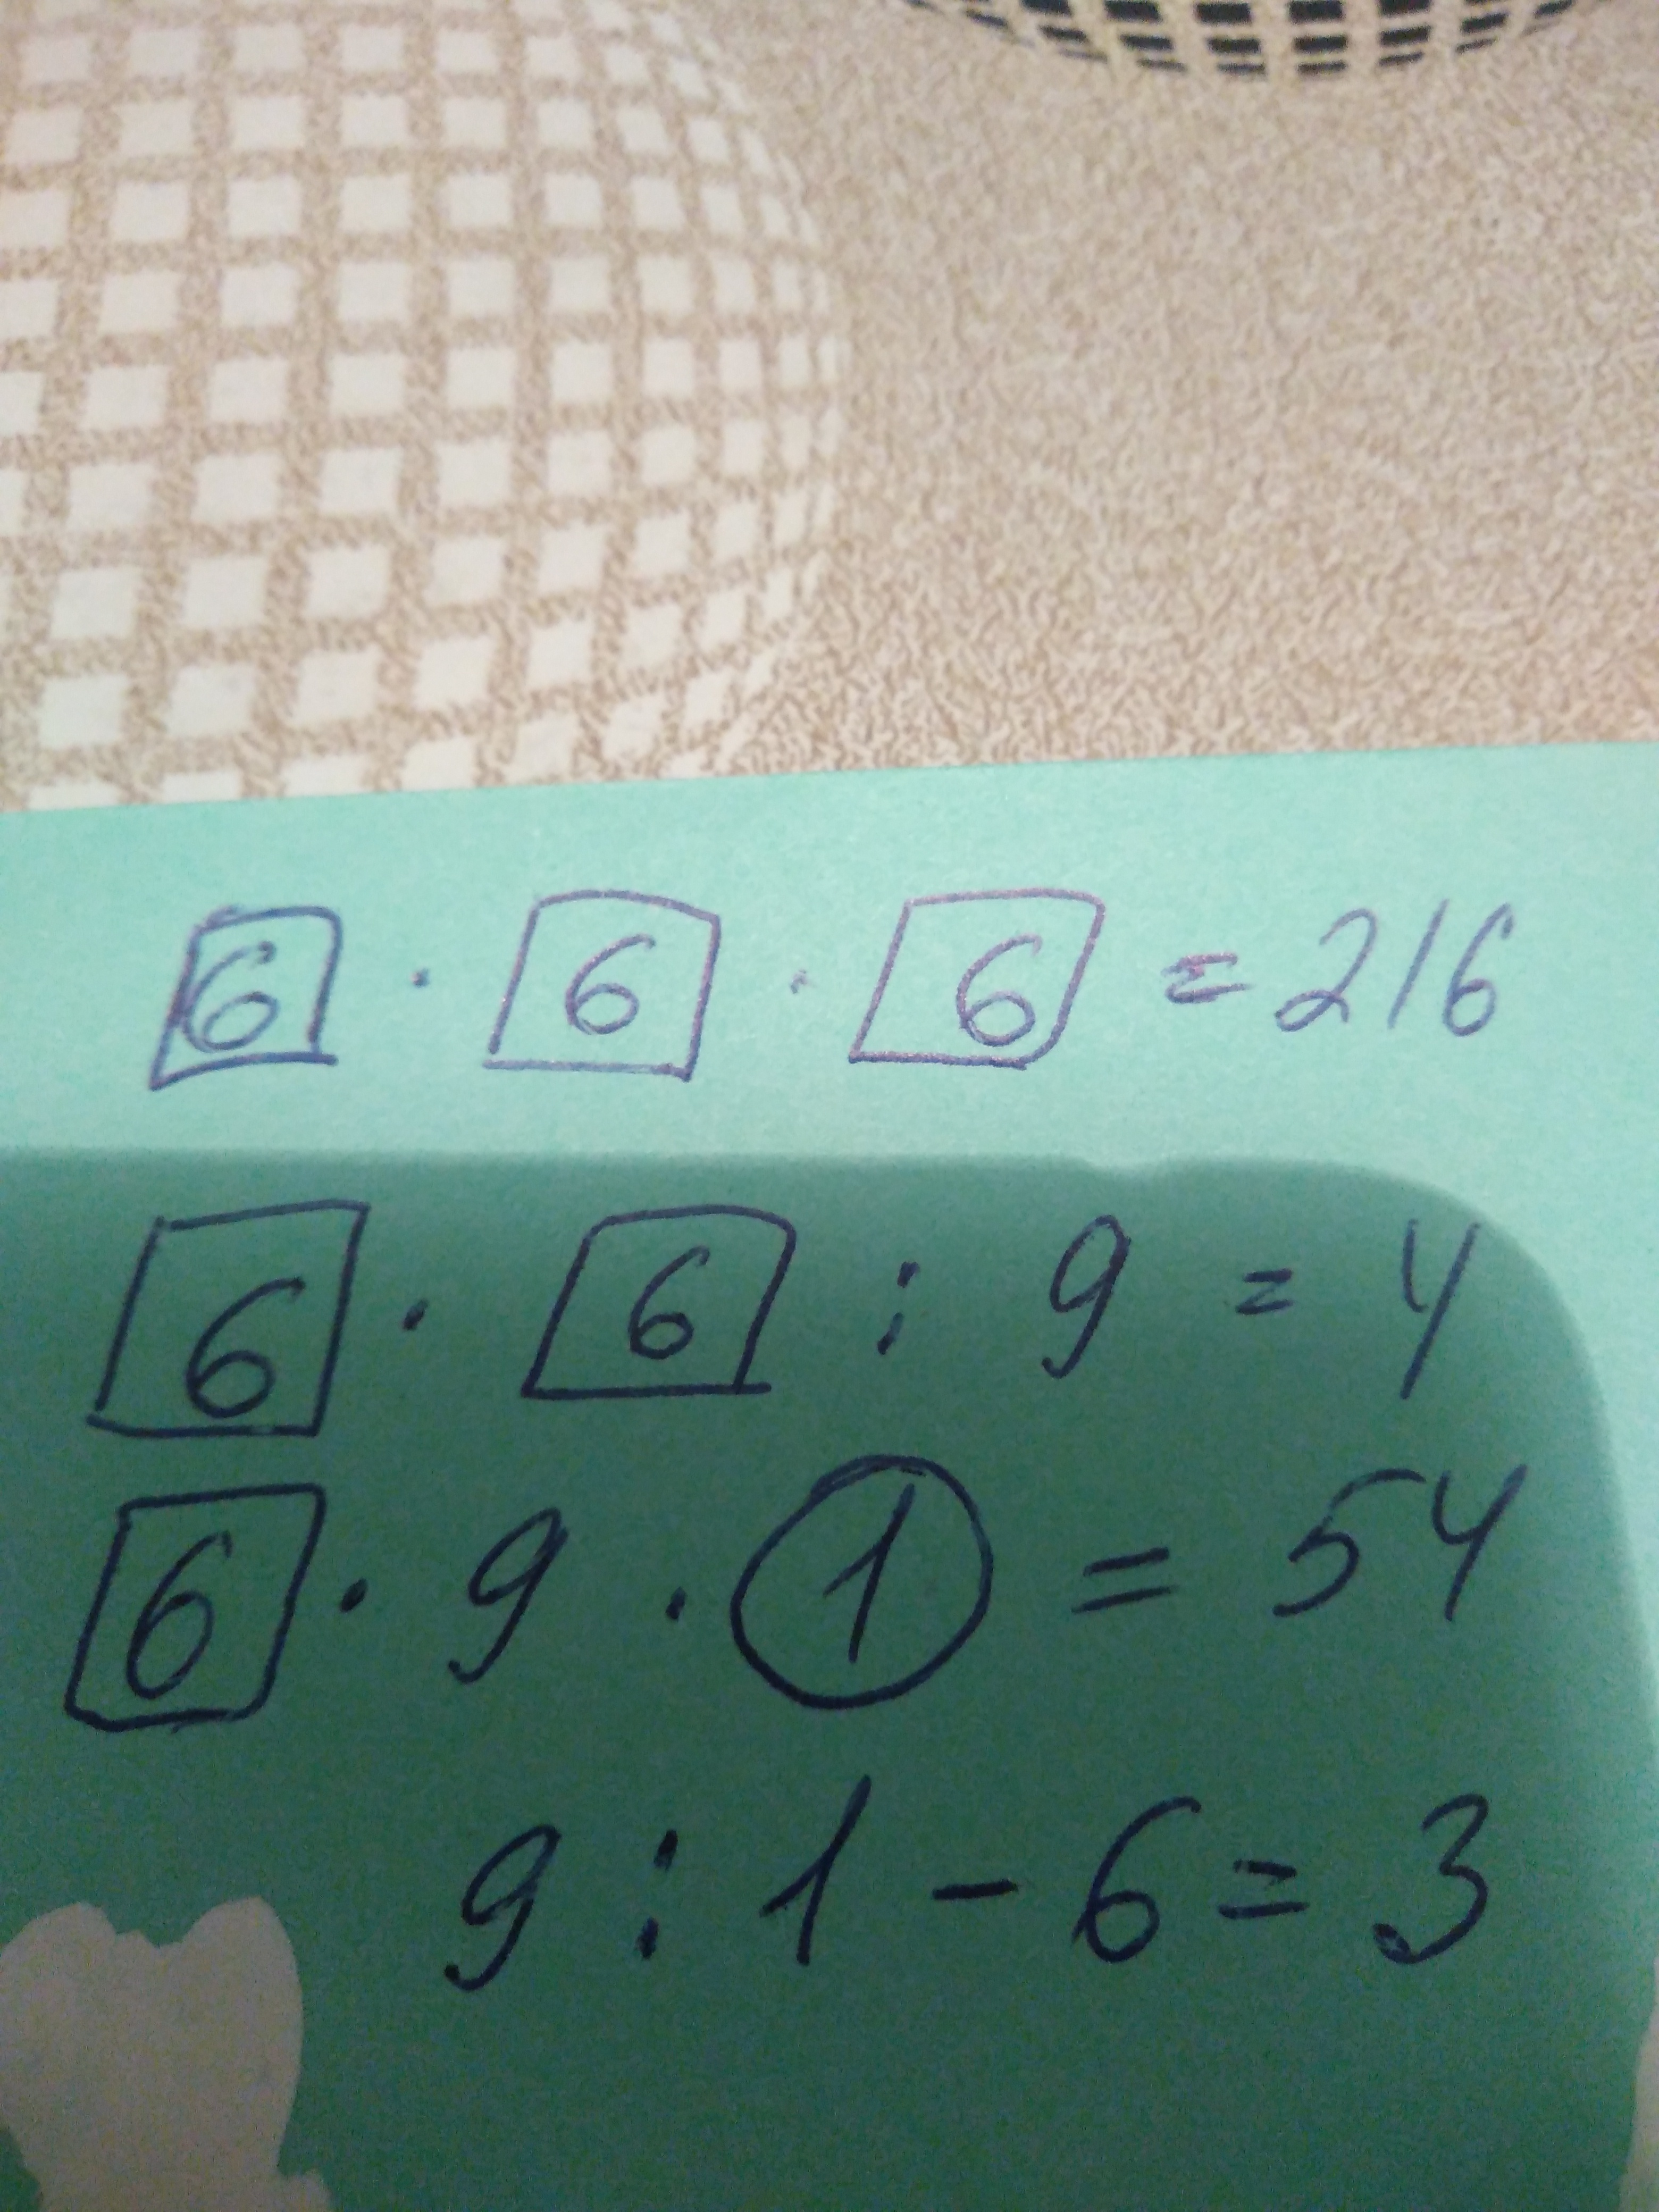 6 · 6 · 6 = 216
6 · 6 : 9 = 4
6 · 9 · 1 = 54
9 : 1 - 6 = 3